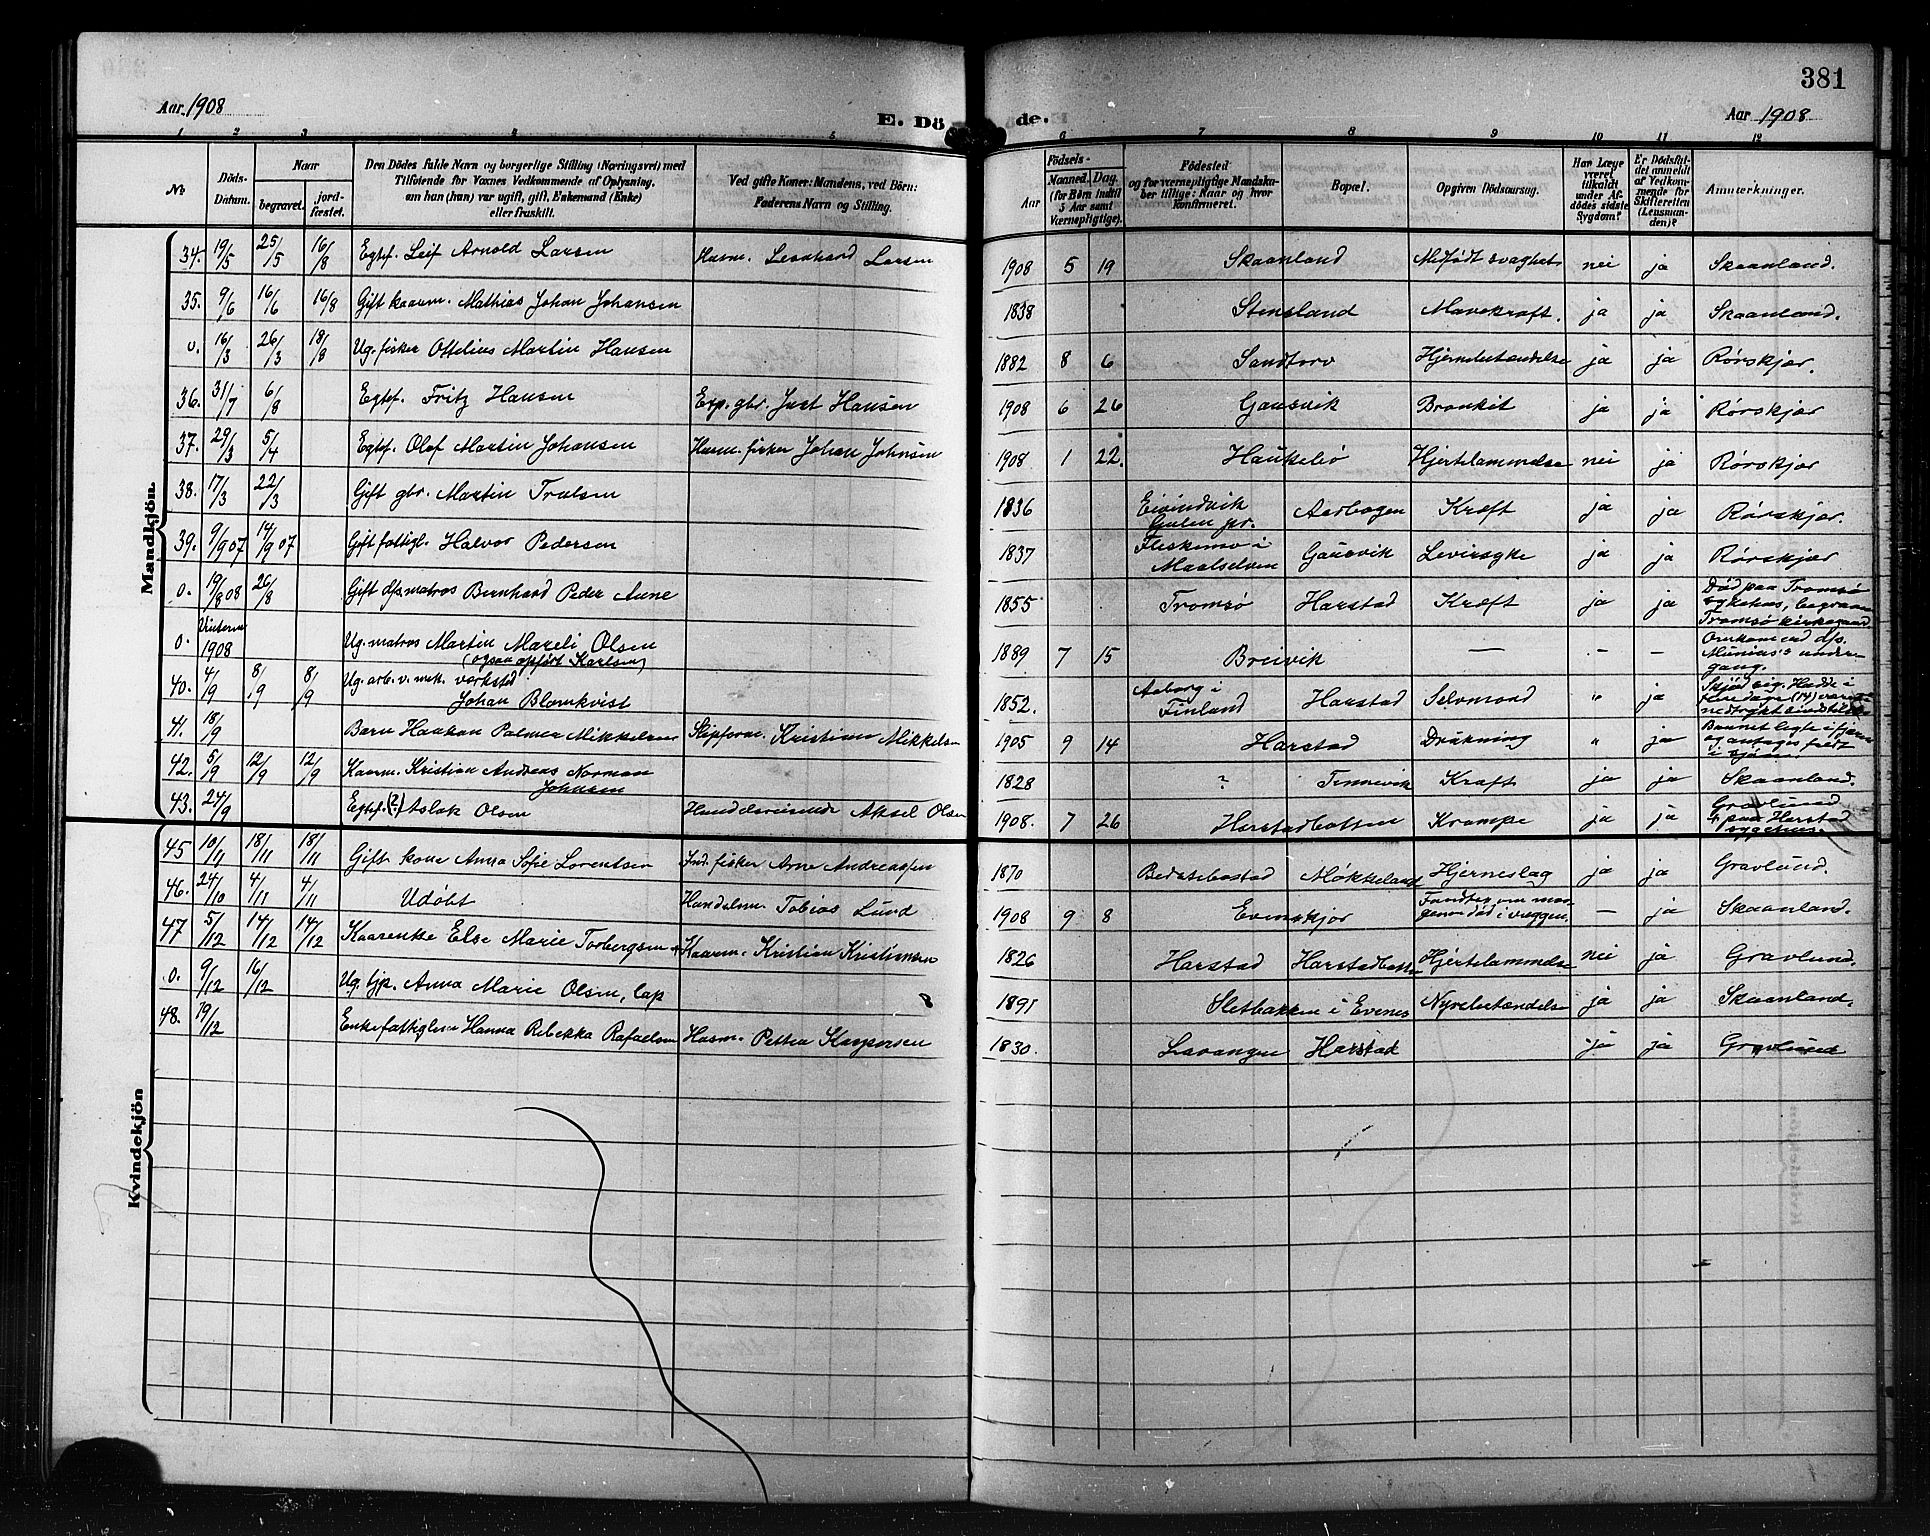 381
Aar 1908 E. Dö de. Aar 1908
1 2 3 4 5 6 7 8 9 10 11 12
No
Döds-Datum.
Naar
begravet.
jord-fæstet.
Den Dödes fulde Navn og borgerlige Stilling (Næringsvei) med
Tilföiende for Voxnes Vedkommende af Oplysning,
om han (hun) var ugift, gift, Enkemand (Enke)
eller fraskilt.
Ved gifte Koner: Mandens, ved Börn:
Faderens Navn og Stilling.
Födsels-
Aar
Maaned. Dag.
(for Börn indtil
5 Aar samt
Værnepligtige).
Födested
og for værnepligtige Mandska-
ber tillige: Naar og hvor
konfirmeret.
Bopæl.
Opgiven Dödsaarsag.
Har Læge
været
tilkaldt
under Af-
dödes sidste
Sygdom?
Er Dödsfal-
det anmeldt
af Vedkom-
mende for
Skifteretten
(Lensman-
den)?
Anmærkninger.
Mandkjön.
34. 19/5 25/5 16/8 Egtef. Leif Arnold Larsen Husm. Leonhard Larsen 1908 5 19 Skaanland Medfødt svaghet nei ja Skaanland.
35. 9/6 16/6 16/8 Gift kaarm. Mathias Johan Johansen 1838 Stensland Mavekræft. ja ja Skaanland.
0. 16/3 26/3 18/8 Ug. fisker Ottelius Martin Hansen 1882 8 6 Sandtorv Hjernebetændelse ja ja Rørskjær.
36. 31/7 6/8 Egtef. Fritz Hansen Exp. gbr. Just Hansen 1908 6 26 Gausvik Bronkit ja ja Rørskjær
37. 29/3 5/4 Egtef. Olaf Martin Johansen Husm. fisker Johan Johnsen 1908 1 22. Haukebø Hjertelammelse nei ja Rørskjær
38. 17/3 22/3 Gift gbr. Martin Trælsen 1836 Eivindvik
Gulen pr. Aarbogen Kræft ja ja Rørskjær.
39. 9/9 07 14/9 07 Gift fattigl. Halvor Pedersen 1837 Fleskemo i
Maalselven Gausvik Leversyke ja ja Rørskjær
0. 19/8 08 26/8 Gift d/s matros Bernhard Peder Aune 1855 Tromsø Harstad Kræft ja ja Død paa Tromsø
sykehus, begraven
Tromsø kirkegaard.
0. Vinteren
1908 Ug. matros Martin Mareli Olsen
(ogsaa opført Karlsen) 1889 7 15 Breivik — — — Omkom ved d/s.
undergang.
40. 4/9 8/9 8/9 Ug. arb. v. mek. verksted
Johan Blomkvist 1852. Aaborg i
Finland Harstad Selvmord " ja Skjøt sig. Hadde i
flere dage (14) været
nedtrykt
41. 18/9 Barn Haakon Palmer Mikkelsen Skipsform. Kristian Mikkelsen 1905 9 14 Harstad Drukning " ja Barnet legte i fjæren
og antages faldt
i sjøen.
42. 5/9 12/9 12/9 Kaarm. Kristian Andreas Norman
Johnsen 1828 ? Tennevik Kræft ja ja Skaanland.
43. 24/9 Egtef. (2) Aslak Olsen Handelsreisende Aksel Olsen 1908. 7 26 Harstadbotten Krampe ja ja Gravlund
† paa Harstad
sygehus.
Kvindekjön
45 10/11 18/11 18/11 Gift kone Anna Sofie Lorentsen Ind. fisker Arne Andreassen 1870 Møkkeland Hjerneslag ja ja Gravlund.
46. 24/10 4/11 4/11 Udøbt Handelsm. Tobias Lund 1908 9 8 Evenskjær Fandtes om mor-
genen død i vuggen. — ja Skaanland.
47 5/12 14/12 14/12 Kaarenke Else Marie Torbergsen Kaarm. Kristian Kristiansen 1826 Harstad Harstadbotten Hjertelammelse nei ja Gravlund.
0. 9/12 16/12 Ug. tjp. Anna Marie Olsen, lap 1891 Sletbakken i Evenes Nyrebetændelse ja ja Skaanland.
48. 19/12 Enke fattiglem Hanna Rebekka Rafaelsen Husm. Petter Kaspersen 1830. Lavangen Harstad ja ja Gravlund